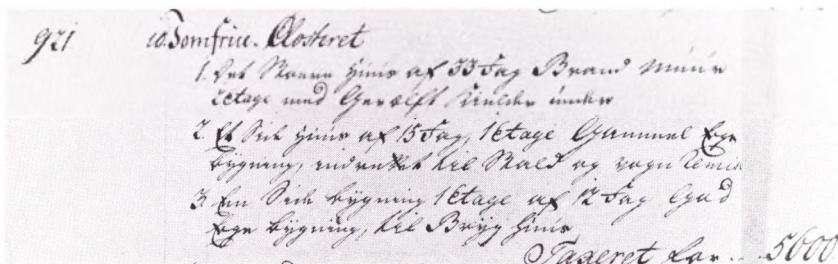 921 10. Jomfrue. Closteret
1. Det Store Huus af 33 Fag Brand Muur
2 Etage med Gevelft Kielder under
2. Et Side Huus af 15 Fag, 1 Etage Gammel Ege
bygning, indrettet til Stald og vogn Remise
3. En Side bygning 1 Etage af 12 Fag God
Ege bygning, til Bryg Huus
Taxeret for .. 5600